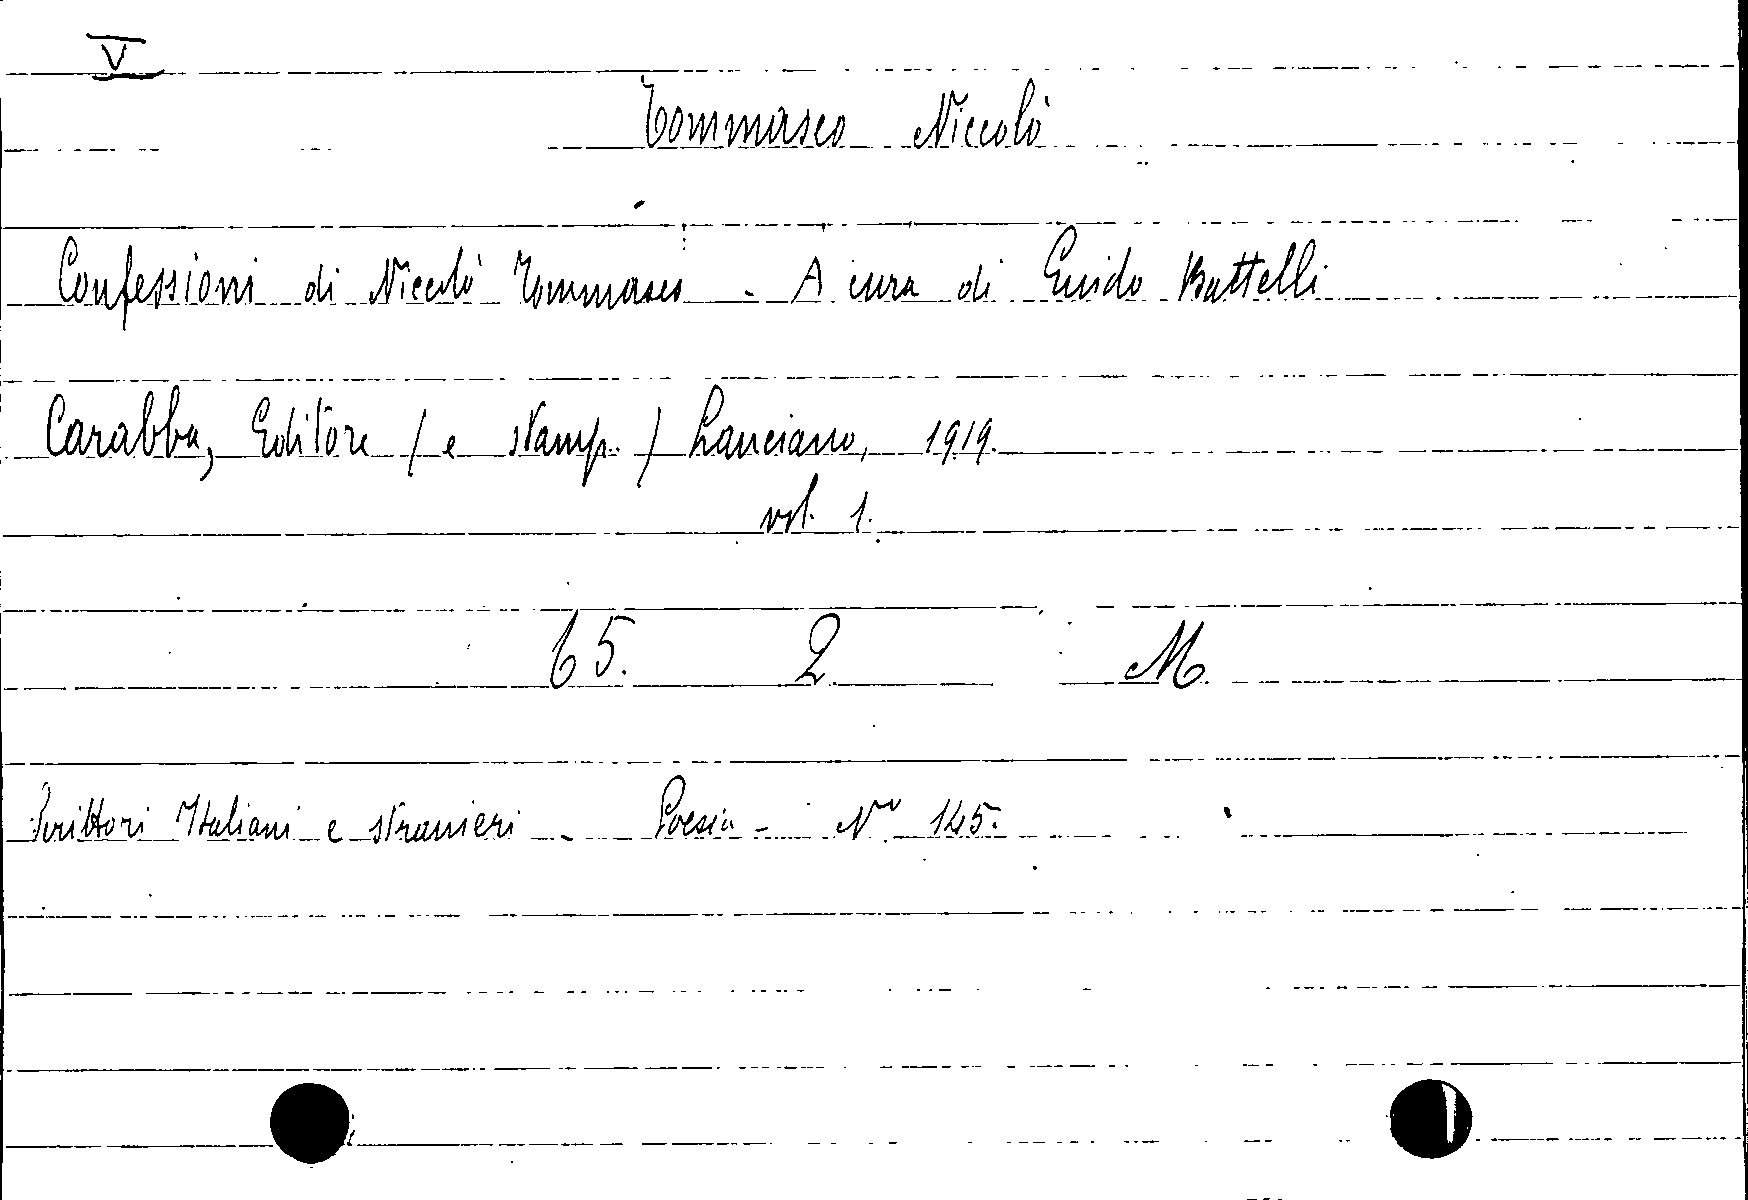 V
Tommaseo Niccolò
Confessioni di Niccolò Tommaseo - A cura di Guido Battelli
Carabba, Editore / e stamp. / Lanciano, 1919.
vol. 1.
65. 2 M.
Scrittori Italiani e stranieri - Poesia - No 145.